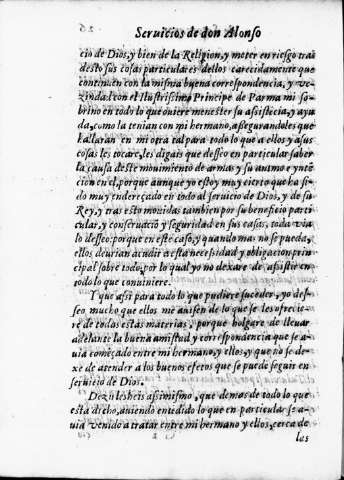 Seruicios de don Alonso
cio de Dios, y bien de la Religion, y meter en riesgo tras
desto sus cosas particulares dellos carecidamente que
continuen con la misma buena correspondencia, y ve-
zindad con el Ilustrissimo Principe de Parma mi so-
brino en todo lo que ouiere menester su assistecia, y ayu
da, como la tenian con mi hermano, assegurandoles que
hallaran en mi otra tal para todo lo que a ellos y a sus
cosas les tocare, les digais que desseo en particular saber
la causa deste mouimiento de armas y su animo e ynte
cion en el, porque aunque yo estoy muy cierto que ha si-
do muy endereçado en todo al seruicio de Dios, y de su
Rey, y tras esto mouidas tambien por su beneficio parti
cular, y conseruacio y seguridad en sus casas, toda via
lo desseo: porque en este caso, y quando mas no se pueda,
ellos deurian acudir a esta necessidad y obligacion prin-
cipal sobre todo, por lo qual yo no dexare de assistir en
todo lo que conuiniere.
Y que assi para todo lo que pudiere suceder, yo des-
seo mucho que ellos me auisen de lo que se les ofrecie-
re de todas estas materias, porque holgare de lleuar
adelante la buena amistad y correspondencia que se a-
uia començado entre mi hermano, y ellos, y que no se de-
xe de atender a los buenos efetos que se puede seguir en
seruicio de Dios.
Dezirlesheis assimismo, que demas de todo lo que
esta dicho, auiendo entedido lo que en particular se a-
uia venido a tratar entre mi hermano y ellos, cerca de
las